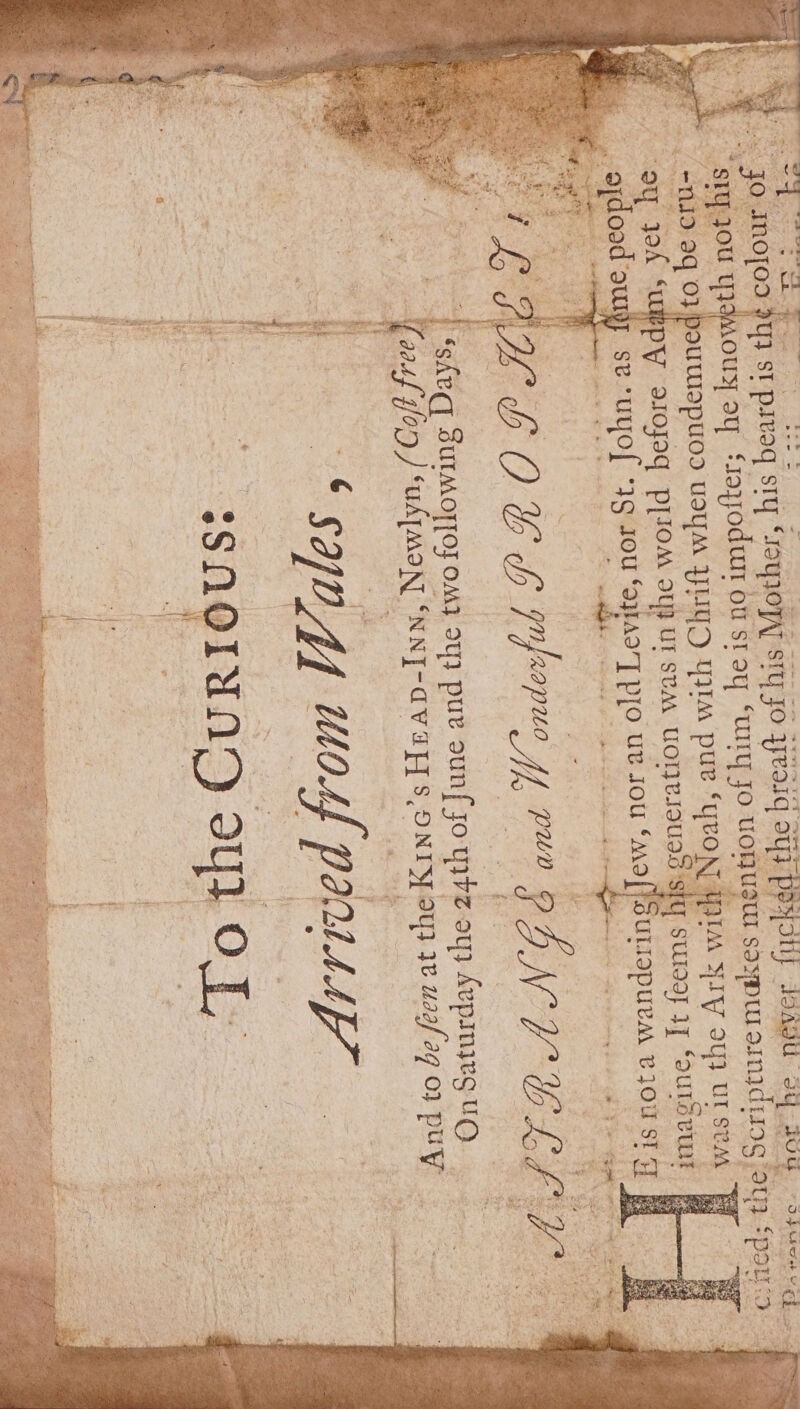 To the CURIOUS:
Arrived from Wales,
And to be ſeen at the KING's HEAD-INN, Newlyn, (Coſt free)
On Saturday the 24th of June and the two following Days,
A STRANGE and Wonderful PROPHET!
HE is not a wandering Jew, nor an old Levite, nor St. John. as ſome people
imagine, It ſeems his generation was in the world before Adam, yet he
was in the Ark with Noah, and with Chriſt when condemned to be cru-
cified; the Scripture makes mention of him, he is no impoſter; he knoweth not his
Parents nor he never ſucked the breaſt of his Mother, his beard is the colour of